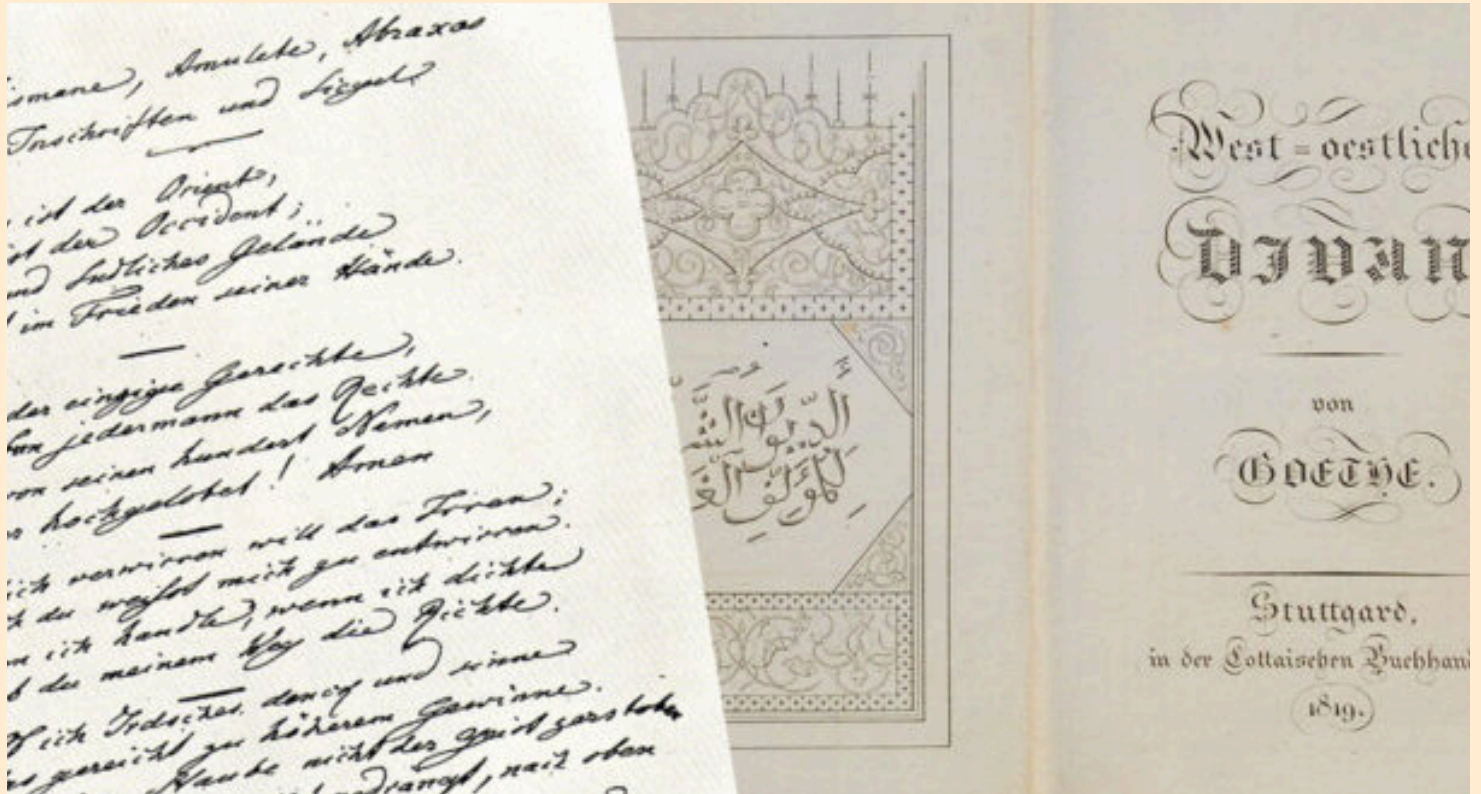 Amulete, Abraxas
Inschriften und Siegel.
ist der Orient,
der Occident;
südliches Gelände
im Frieden seiner Hände.
der einzige Gerechte,
jedermann das Rechte.
von seinen hundert Namen,
hochgelobet! Amen
verwirren will das Irren;
du weißt mich zu entwirren.
ich handle, wenn ich dichte
du meinem Weg die Richte.
ich Irdsches denck und sinne
gereicht zu höherem Gewinne.
Staube nicht der Geist zerstoben
nach oben
الديوان
للمؤلف
West-oestliche
DIVAN
von
GOETHE.
Stuttgard,
in der Cottaischen Buchhand
1819.